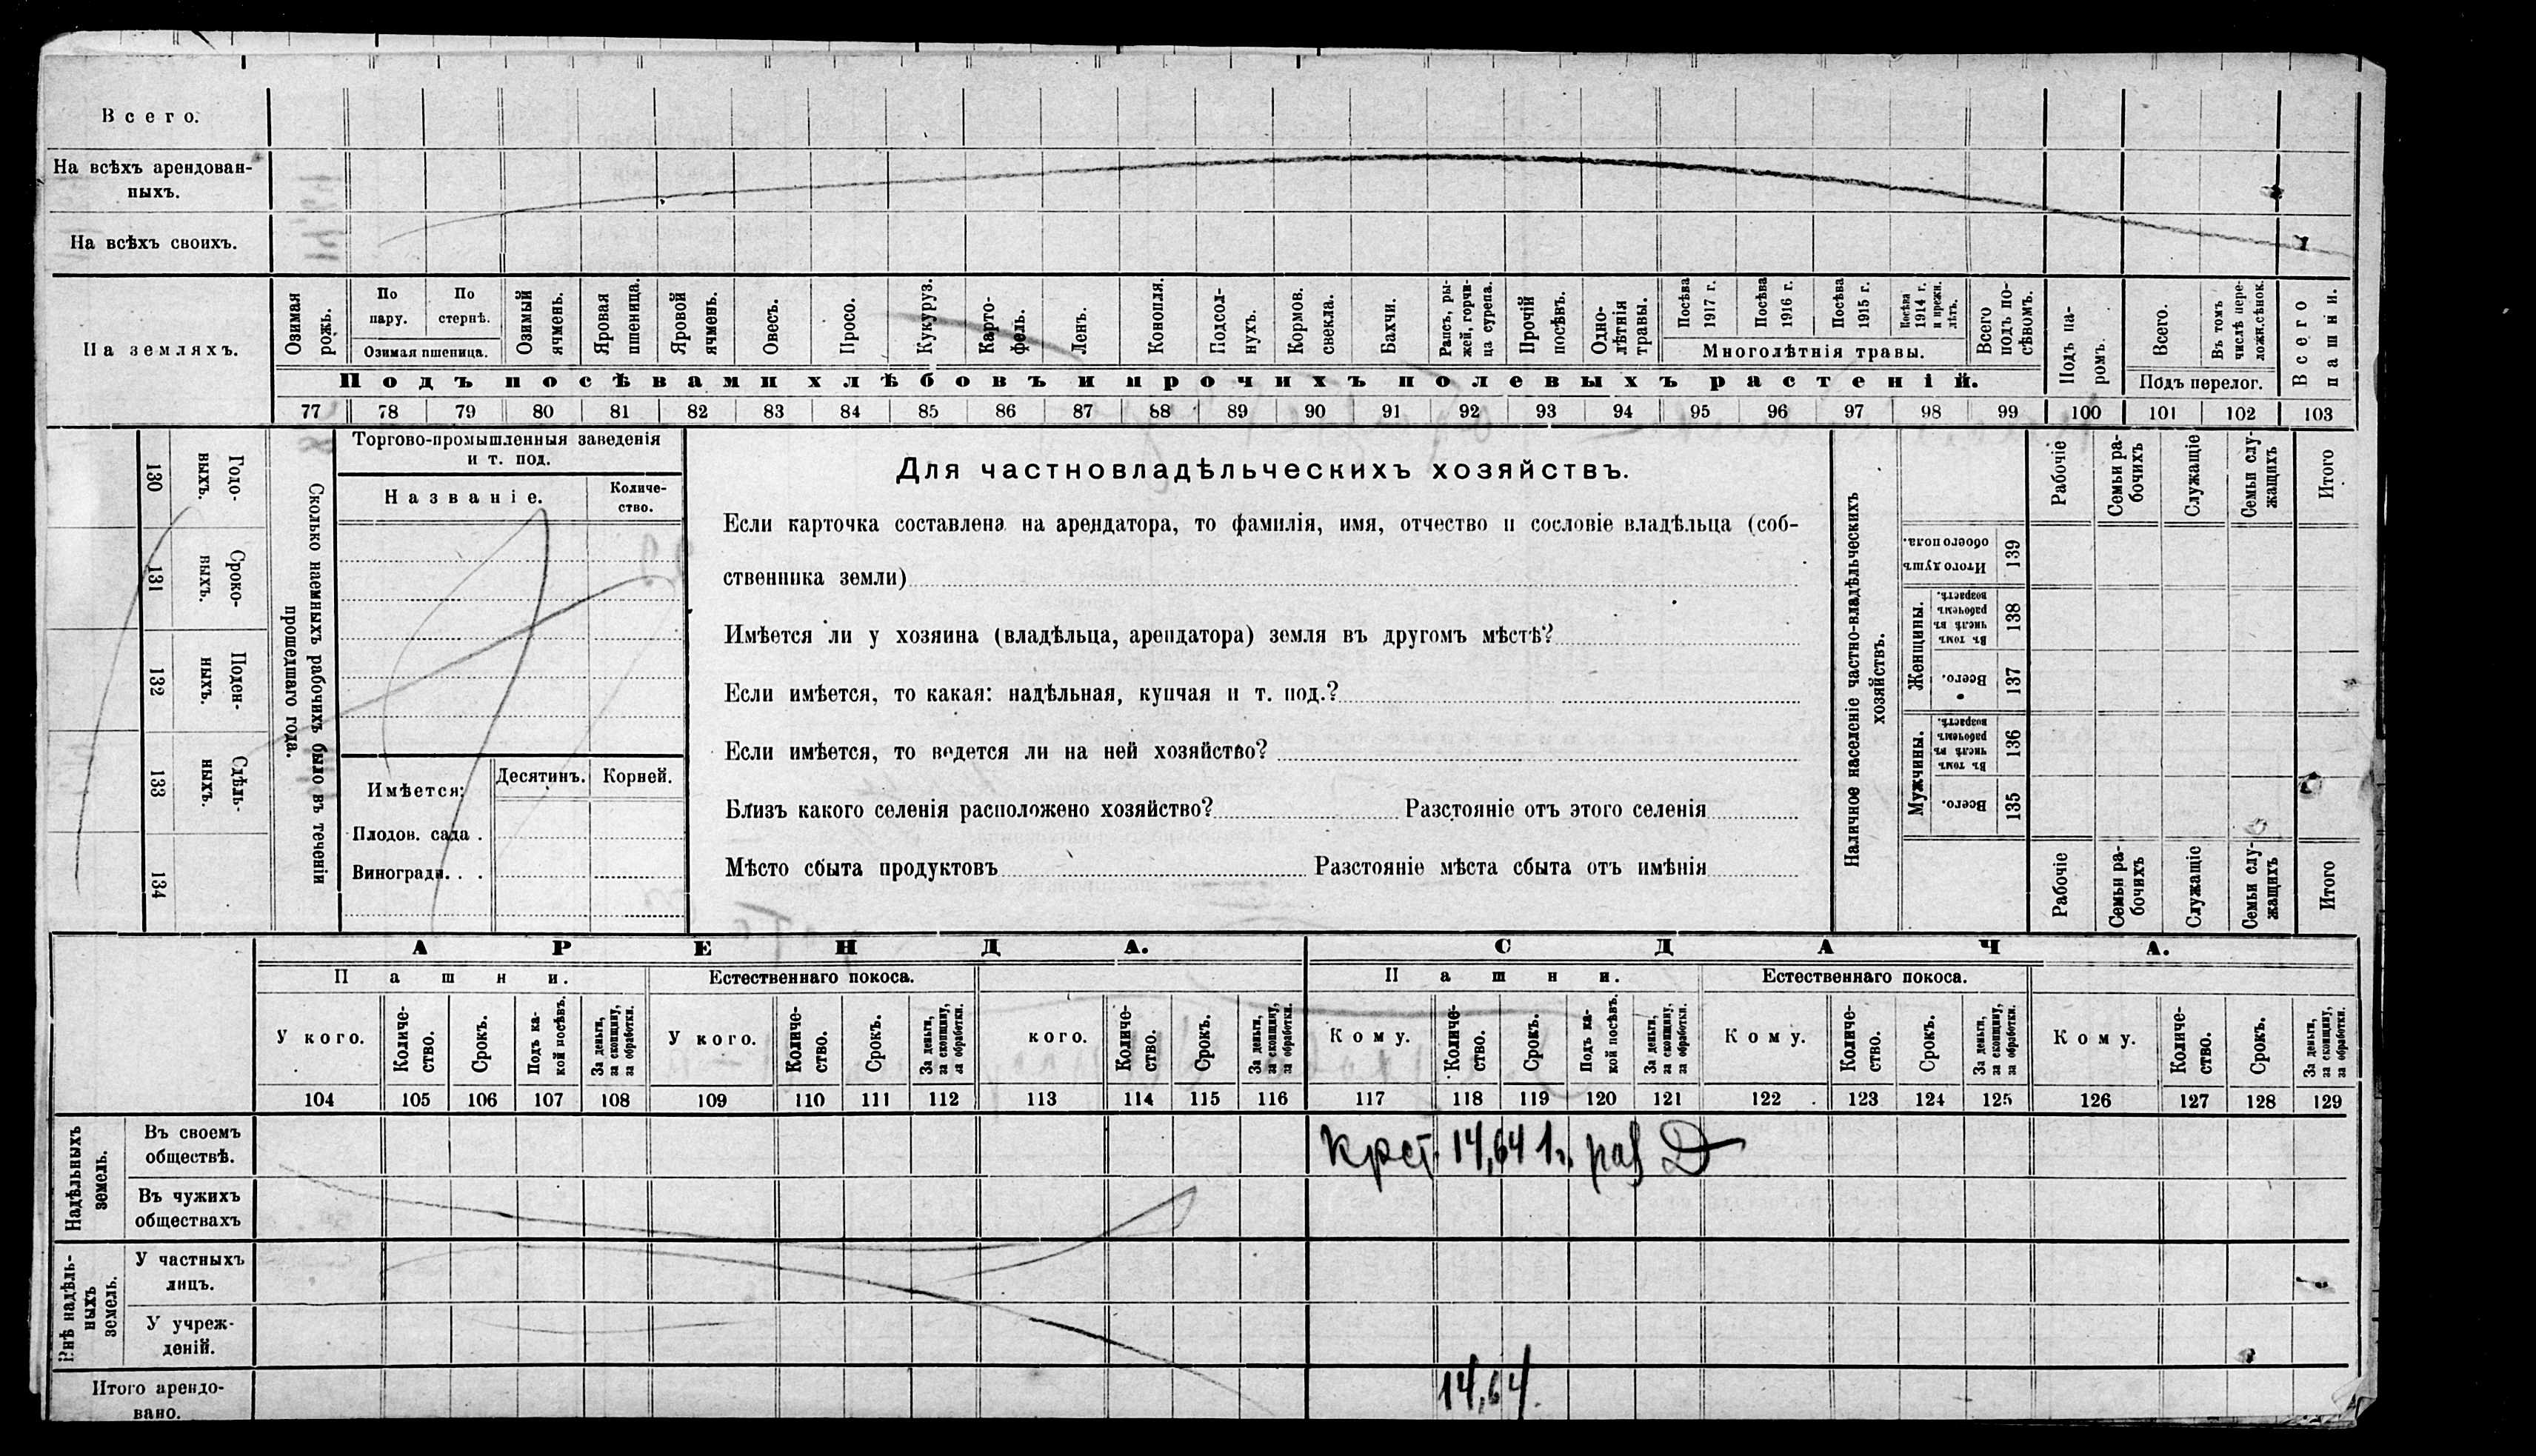 Всего.
На всѣхъ арендован-
ныхъ.
На всѣхъ своихъ.
На земляхъ.
Озимая рожь.
По пару.
По стернѣ.
Озимая пшеница.
Озимый ячмень.
Яровая пшеница.
Яровой ячмень.
Овесъ.
Просо.
Кукуруз.
Карто-
фель.
Ленъ.
Конопля.
Подсол-
нухъ.
Кормов. свекла.
Бахчи.
Рапсъ, ры-
жей, горчи-
ца сурепа.
Прочій посѣвъ.
Одно-
лѣтнія травы.
Посѣва 1917 г.
Посѣва 1916 г.
Посѣва 1915 г.
Посѣва 1914 г. и прежн. лѣтъ.
Многолѣтнія травы.
Всего подъ по-
сѣвомъ.
Подъ па-
ромъ.
Всего.
Въ томъ числѣ пере-
ложн.сѣнок.
Подъ перелог.
Всего пашни.
Подъ посѣвами хлѣбовъ и прочихъ полевыхъ растеній.
77 78 79 80 81 82 83 84 85 86 87 88 89 90 91 92 93 94 95 96 97 98 99 100 101 102 103
Сколько наемныхъ рабочихъ было въ теченіи
прошедшаго года.
Годо-
выхъ.
130
Сроко-
выхъ.
131
Поден-
ныхъ.
132
Сдѣль-
ныхъ.
133
134
Торгово-промышленныя заведенія
и т. под.
Названіе.
Количе-
ство.
Имѣется:
Десятинъ.
Корней.
Плодов. сада .
Виноградн. . .
Для частновладѣльческихъ хозяйствъ.
Если карточка составлена на арендатора, то фамилія, имя, отчество и сословіе владѣльца (соб-
ственника земли)
Имѣется ли у хозяина (владѣльца, арендатора) земля въ другомъ мѣстѣ?
Если имѣется, то какая: надѣльная, купчая и т. под.?
Если имѣется, то ведется ли на ней хозяйство?
Близъ какого селенія расположено хозяйство? Разстояніе отъ этого селенія
Мѣсто сбыта продуктовъ Разстояніе мѣста сбыта отъ имѣнія
Наличное населеніе частно-владѣльческихъ
хозяйствъ.
Рабочіе
Семьи ра-
бочихъ
Служащіе
Семьи слу-
жащихъ
Итого
Итого душъ
обоего пола.
139
Женщины.
Въ томъ числѣ въ рабочемъ возрастѣ.
138
Всего.
137
Мужчины.
Въ томъ числѣ въ рабочемъ возрастѣ.
136
Всего.
135
Рабочіе
Семьи ра-
бочихъ
Служащіе
Семьи слу-
жащихъ
Итого
АРЕНДА.
СДАЧА.
Пашни.
Естественнаго покоса.
Пашни.
Естественнаго покоса.
У кого.
Количе-
ство.
Срокъ.
Подъ ка-
кой посѣвъ.
За деньги,
за скопщину,
за обработки.
У кого.
Количе-
ство.
Срокъ.
За деньги,
за скопщину,
за обработки.
кого.
Количе-
ство.
Срокъ.
За деньги,
за скопщину,
за обработки.
Кому.
Количе-
ство.
Срокъ.
Подъ ка-
кой посѣвъ.
За деньги,
за скопщину,
за обработки.
Кому.
Количе-
ство.
Срокъ.
За деньги,
за скопщину,
за обработки.
Кому.
Количе-
ство.
Срокъ.
За деньги,
за скопщину,
за обработки.
104 105 106 107 108 109 110 111 112 113 114 115 116 117 118 119 120 121 122 123 124 125 126 127 128 129
Надѣльныхъ
земель.
Въ своемъ
обществѣ.
крст. 14,64 1г. раз Д
Въ чужихъ
обществахъ
Внѣ надѣль-
ныхъ
земель.
У частныхъ
лицъ.
У учреж-
деній.
Итого арендо-
вано.
14,64.